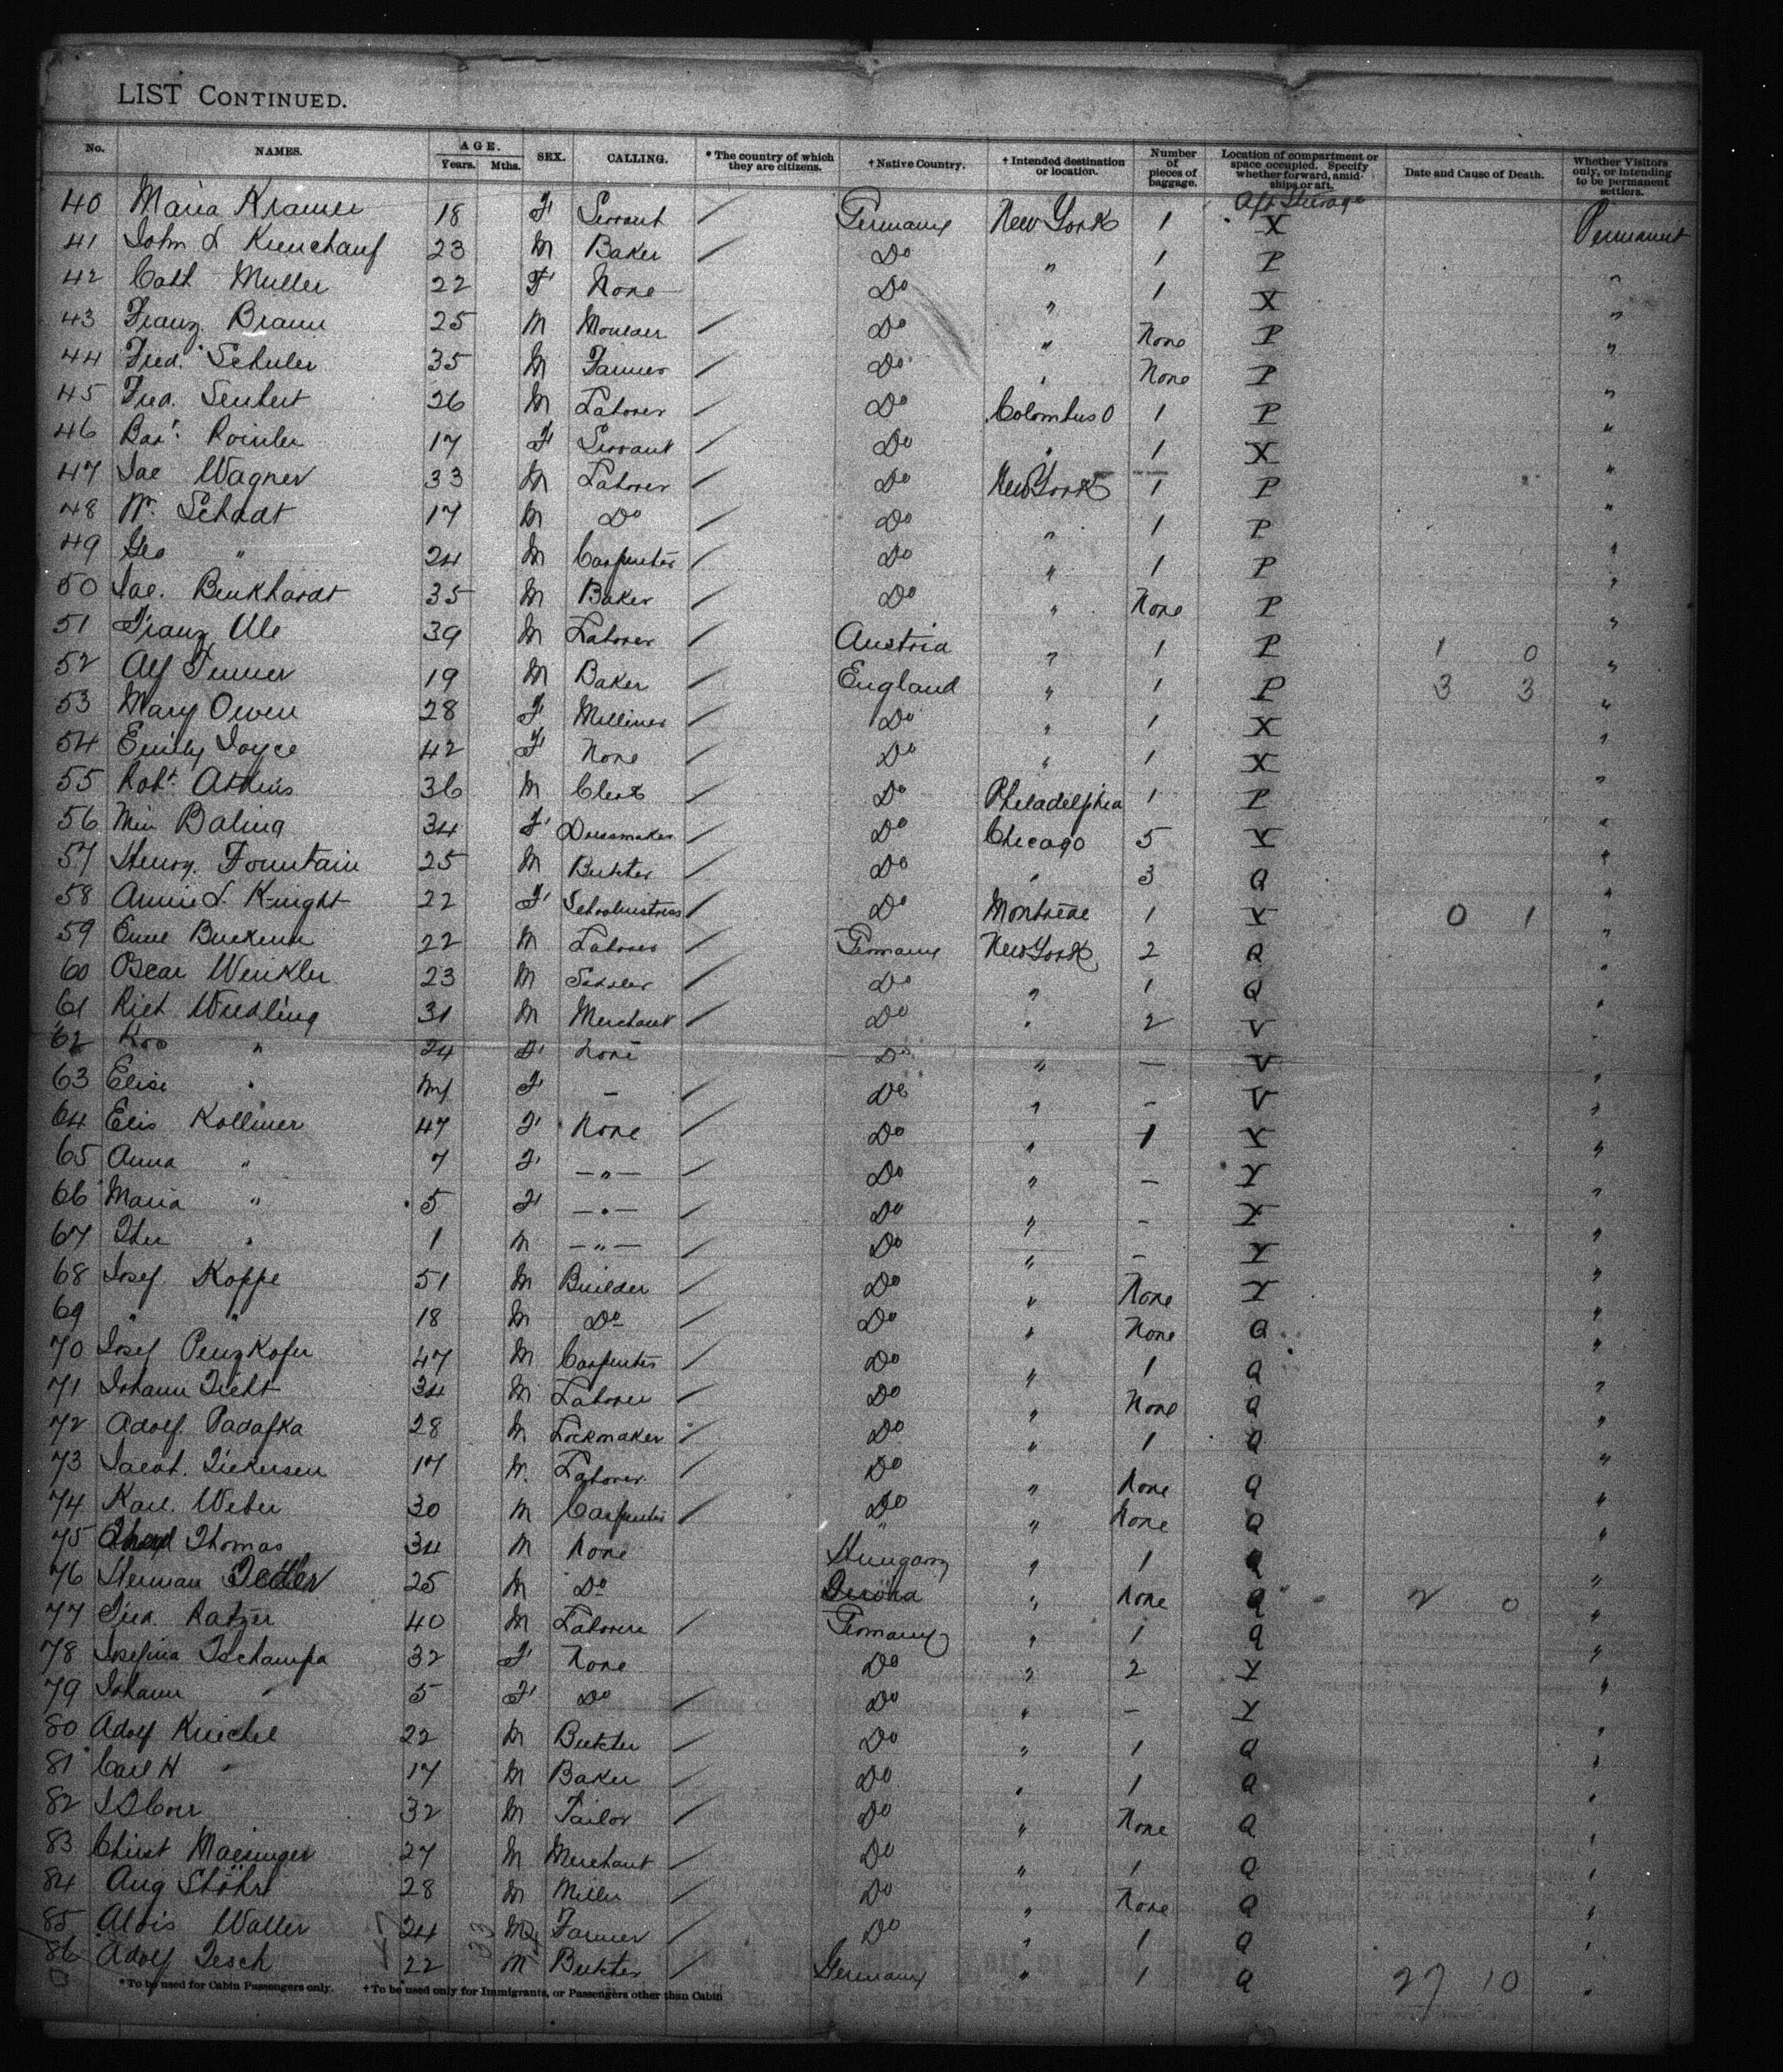 LIST CONTINUED.
No. NAMES. AGE. Years. Mths. SEX. CALLING. * The country of which they are citizens. † Native Country. † Intended destination or location. Number of pieces of baggage. Location of compartment or space occupied. Specify whether forward, amidships or aft. Date and Cause of Death. Whether Visitors only, or intending to be permanent settlers.
Aft Steerage
40 Maria Kramer 18 F Servant / Germany New York 1 X Permanent
41 John L 23 M Baker / Do " 1 P "
42 Cath Muller 22 F None Do " 1 X "
43 Franz Braun 25 M Moulder / Do " None P "
44 Fred. Schuler 35 M Farmer / Do " None P "
45 Fred. Seubert 26 M Laborer / Do Colombus O 1 P "
46 Barr. 17 F Servant / Do " 1 X "
47 Jac Wagner 33 M Laborer / Do New York 1 P "
48 Wm. Schadt 17 M Do / Do " 1 P "
49 Geo " 24 M Carpenter / Do " 1 P "
50 Jac. Burkhardt 35 M Baker / Do " None P "
51 Franz Ule 39 M Laborer / Austria " 1 P 1 0 "
52 Alf Turner 19 M Baker / England " 1 P 3 3 "
53 Mary Owen 28 F Milliner / Do " 1 X "
54 Emily Joyce 42 F None / Do " 1 X "
55 Robt. Atkins 36 M Clerk / Do Philadelphia 1 P "
56 Min Baling 34 F Dressmaker / Do Chicago 5 Y "
57 Henry Fountain 25 M Butcher / Do " 3 Q "
58 Annie L. Knight 22 F Schoolmistress / Do Montreal 1 Y 0 1 "
59 22 M Laborer / Germany New York 2 Q "
60 Oscar Winkler 23 M Saddler / Do " 1 Q "
61 Rich Wiedling 31 M Merchant / Do " 2 V
62 " 24 F None Do " — V "
63 Elise " F — / Do " - V "
64 Elis Kollmer 47 F None / Do " 1 Y "
65 Anna " 7 F —"— / Do " — Y "
66 Maria " 5 F —"— / Do " - Y "
67 " 1 M —"— / Do " - Y "
68 Josef Koppe 51 M Builder / Do " None Y "
69 " " 18 M Do / Do " None Q "
70 Josef Penzkofer 47 M Carpenter / Do " 1 Q "
71 Johann 34 M Laborer / Do " None Q "
72 Adolf Padafka 28 M Lockmaker / Do " 1 Q "
73 Jacob. Dickersen 17 M Laborer / Do " None Q "
74 Karl Weber 30 M Carpenter / Do " None Q "
75 Thomas 34 M None Hungary " 1 Q "
76 Herman 25 M Do " None Q 2 0 "
77 Fred. Ratzer 40 M Laborer / Germany " 1 Q "
78 Josefina Tschampa 32 F None Do " 2 Y "
79 Johann " 5 F Do / Do " - Y "
80 Adolf Kuechel 22 M Butcher / Do " 1 Q "
81 Carl H " 17 M Baker / Do " 1 Q "
82 32 M Tailor / Do " None Q "
83 Christ Maesinger 27 M Merchant / Do " 1 Q "
84 Aug Stöhr 28 M Miller / Do " None Q "
85 Alois Waller 24 M Farmer / Do " 1 Q "
86 Adolf Tesch 22 M Butcher / Germany " 1 Q 27 10 "
* To be used for Cabin Passengers only. † To be used only for Immigrants, or Passengers other than Cabin